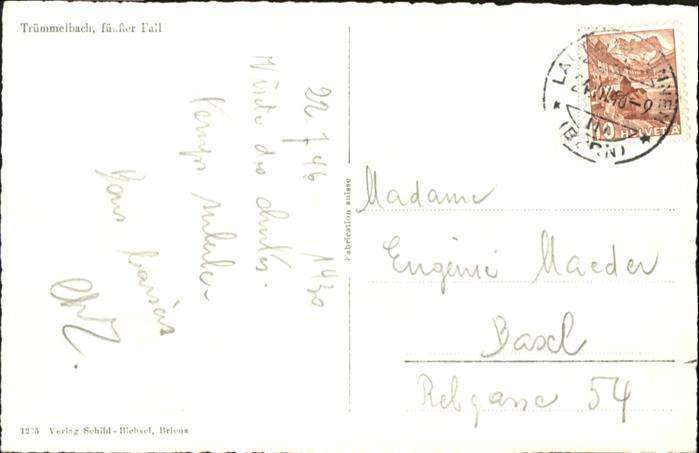 Trümmelbach, fünfter Fall
22 7 46 1430
Visite des chutes.
Temps
Bons baisers
Fabrication suisse
10 HELVETIA
(BERN)
Madame
Eugénie Maeder
Basel
Rebgasse 54
1275 Verlag Schild-Bichsel, Brienz